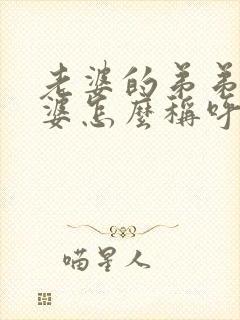 老婆的弟弟
婆怎麼稱呼
喵星人